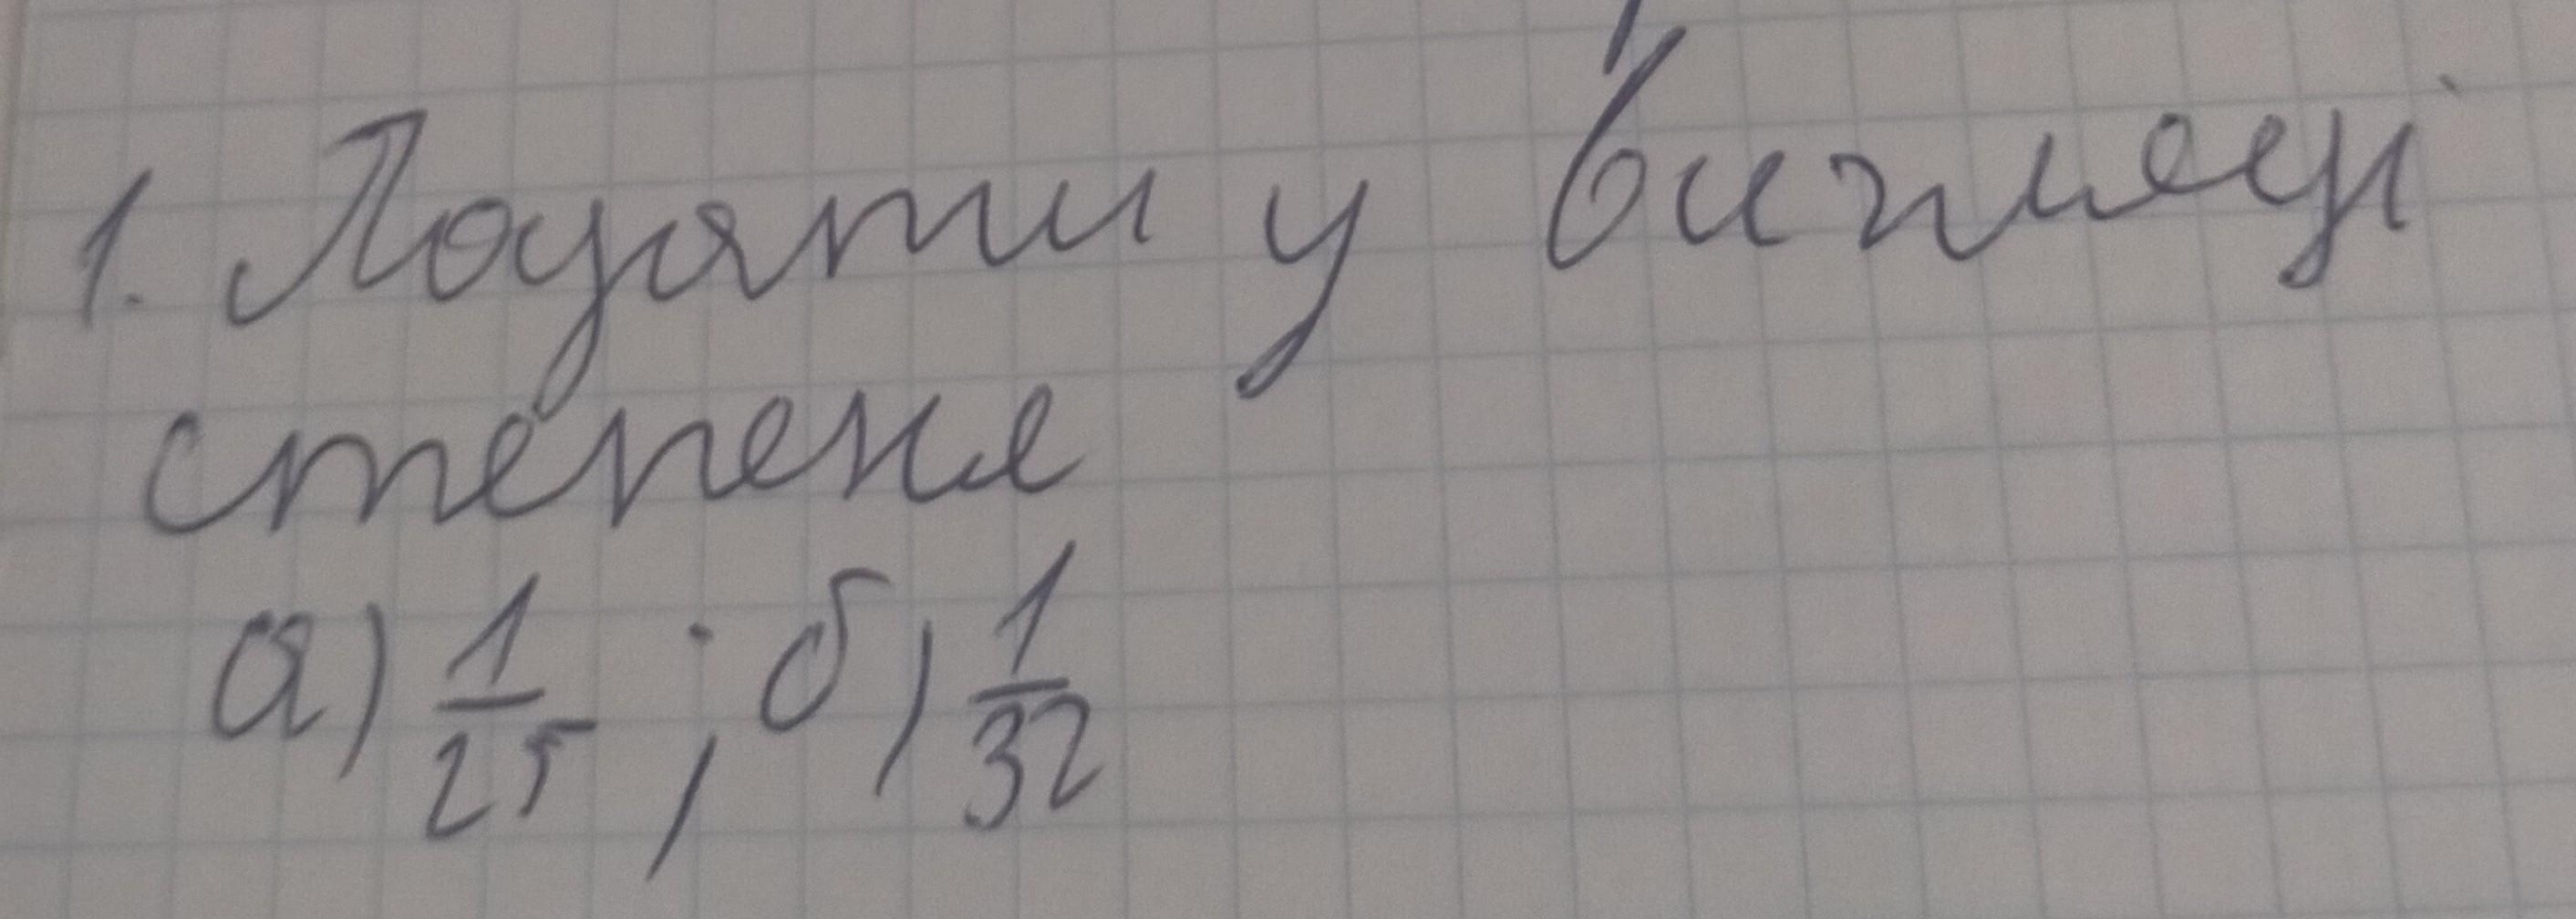 1. Подати у вигляді
степеня
а) 1/25 ; б) 1/32